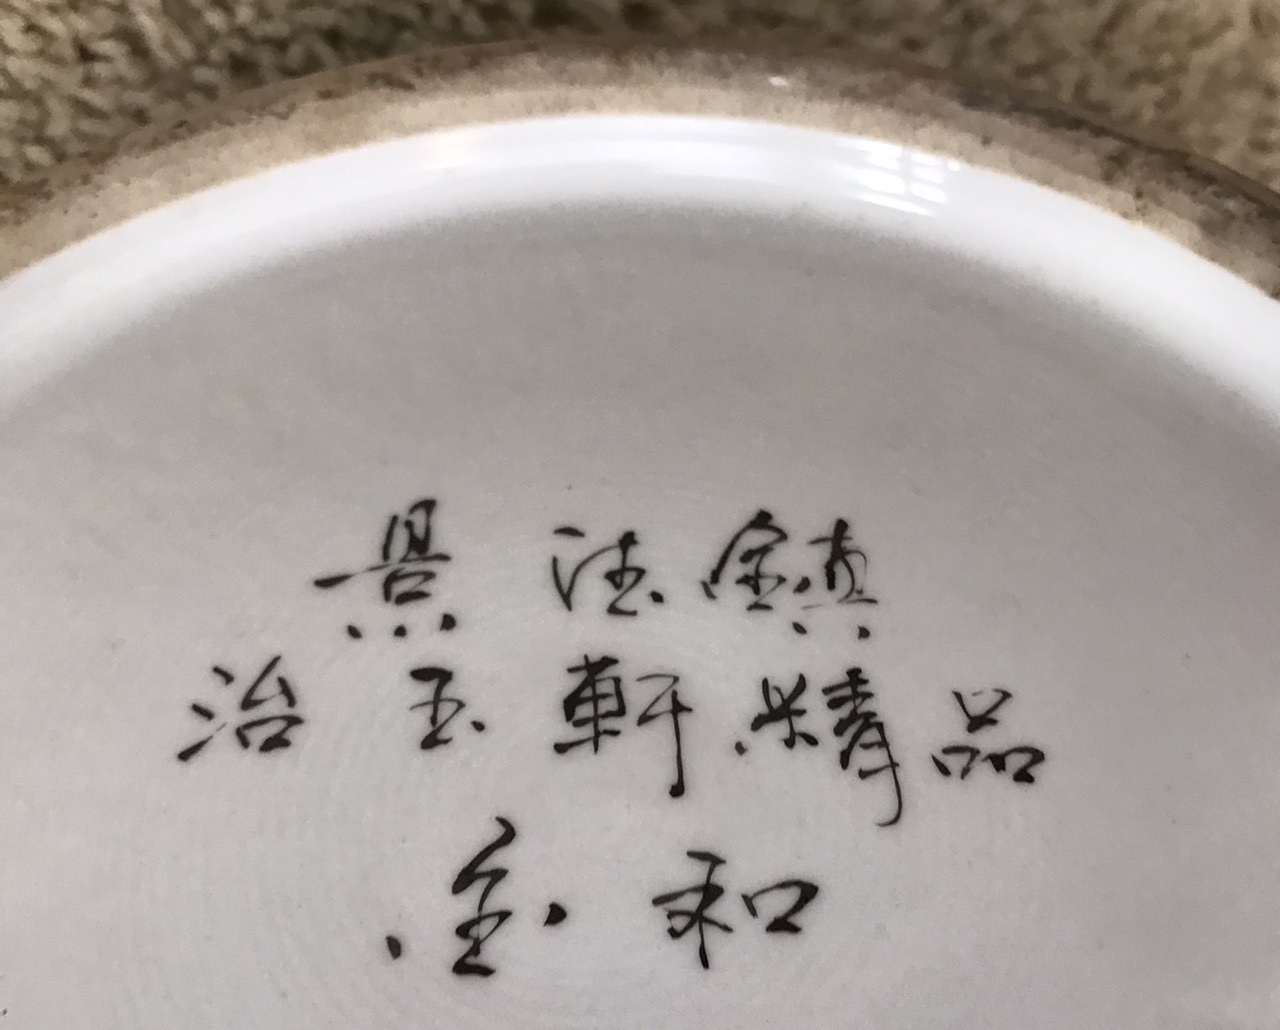 景德鎮
治玉軒精品
金和